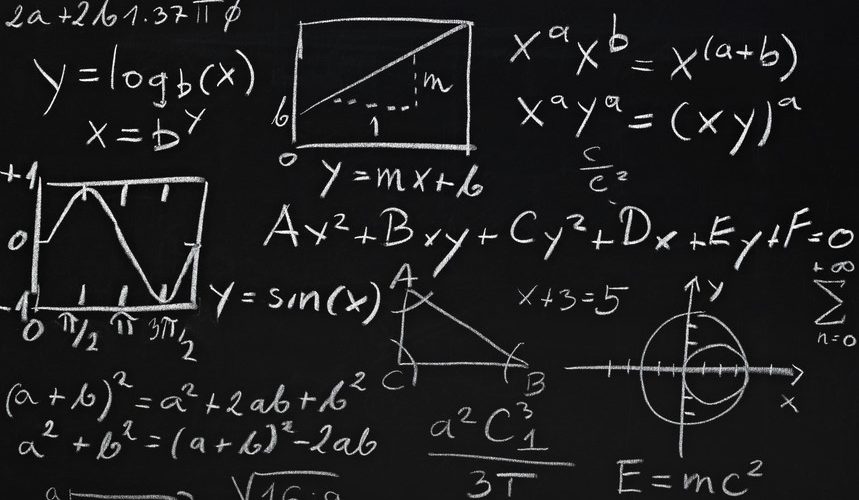 2a+2b 1.37 π φ
y=log_b(x)
x=b^y
b
m
1
0
y=mx+b
x^a x^b = x^(a+b)
x^a y^a = (xy)^a
c/c²
+1
0
-1
0 π/2 π 3π/2
y=sin(x)
Ax²+Bxy+Cy²+Dx+Ey+F=0
A
C
B
x+3=5
y
x
+∞
Σ
n=0
(a+b)²=a²+2ab+b²
a²+b²=(a+b)²-2ab
a²C₁³
3T
E=mc²